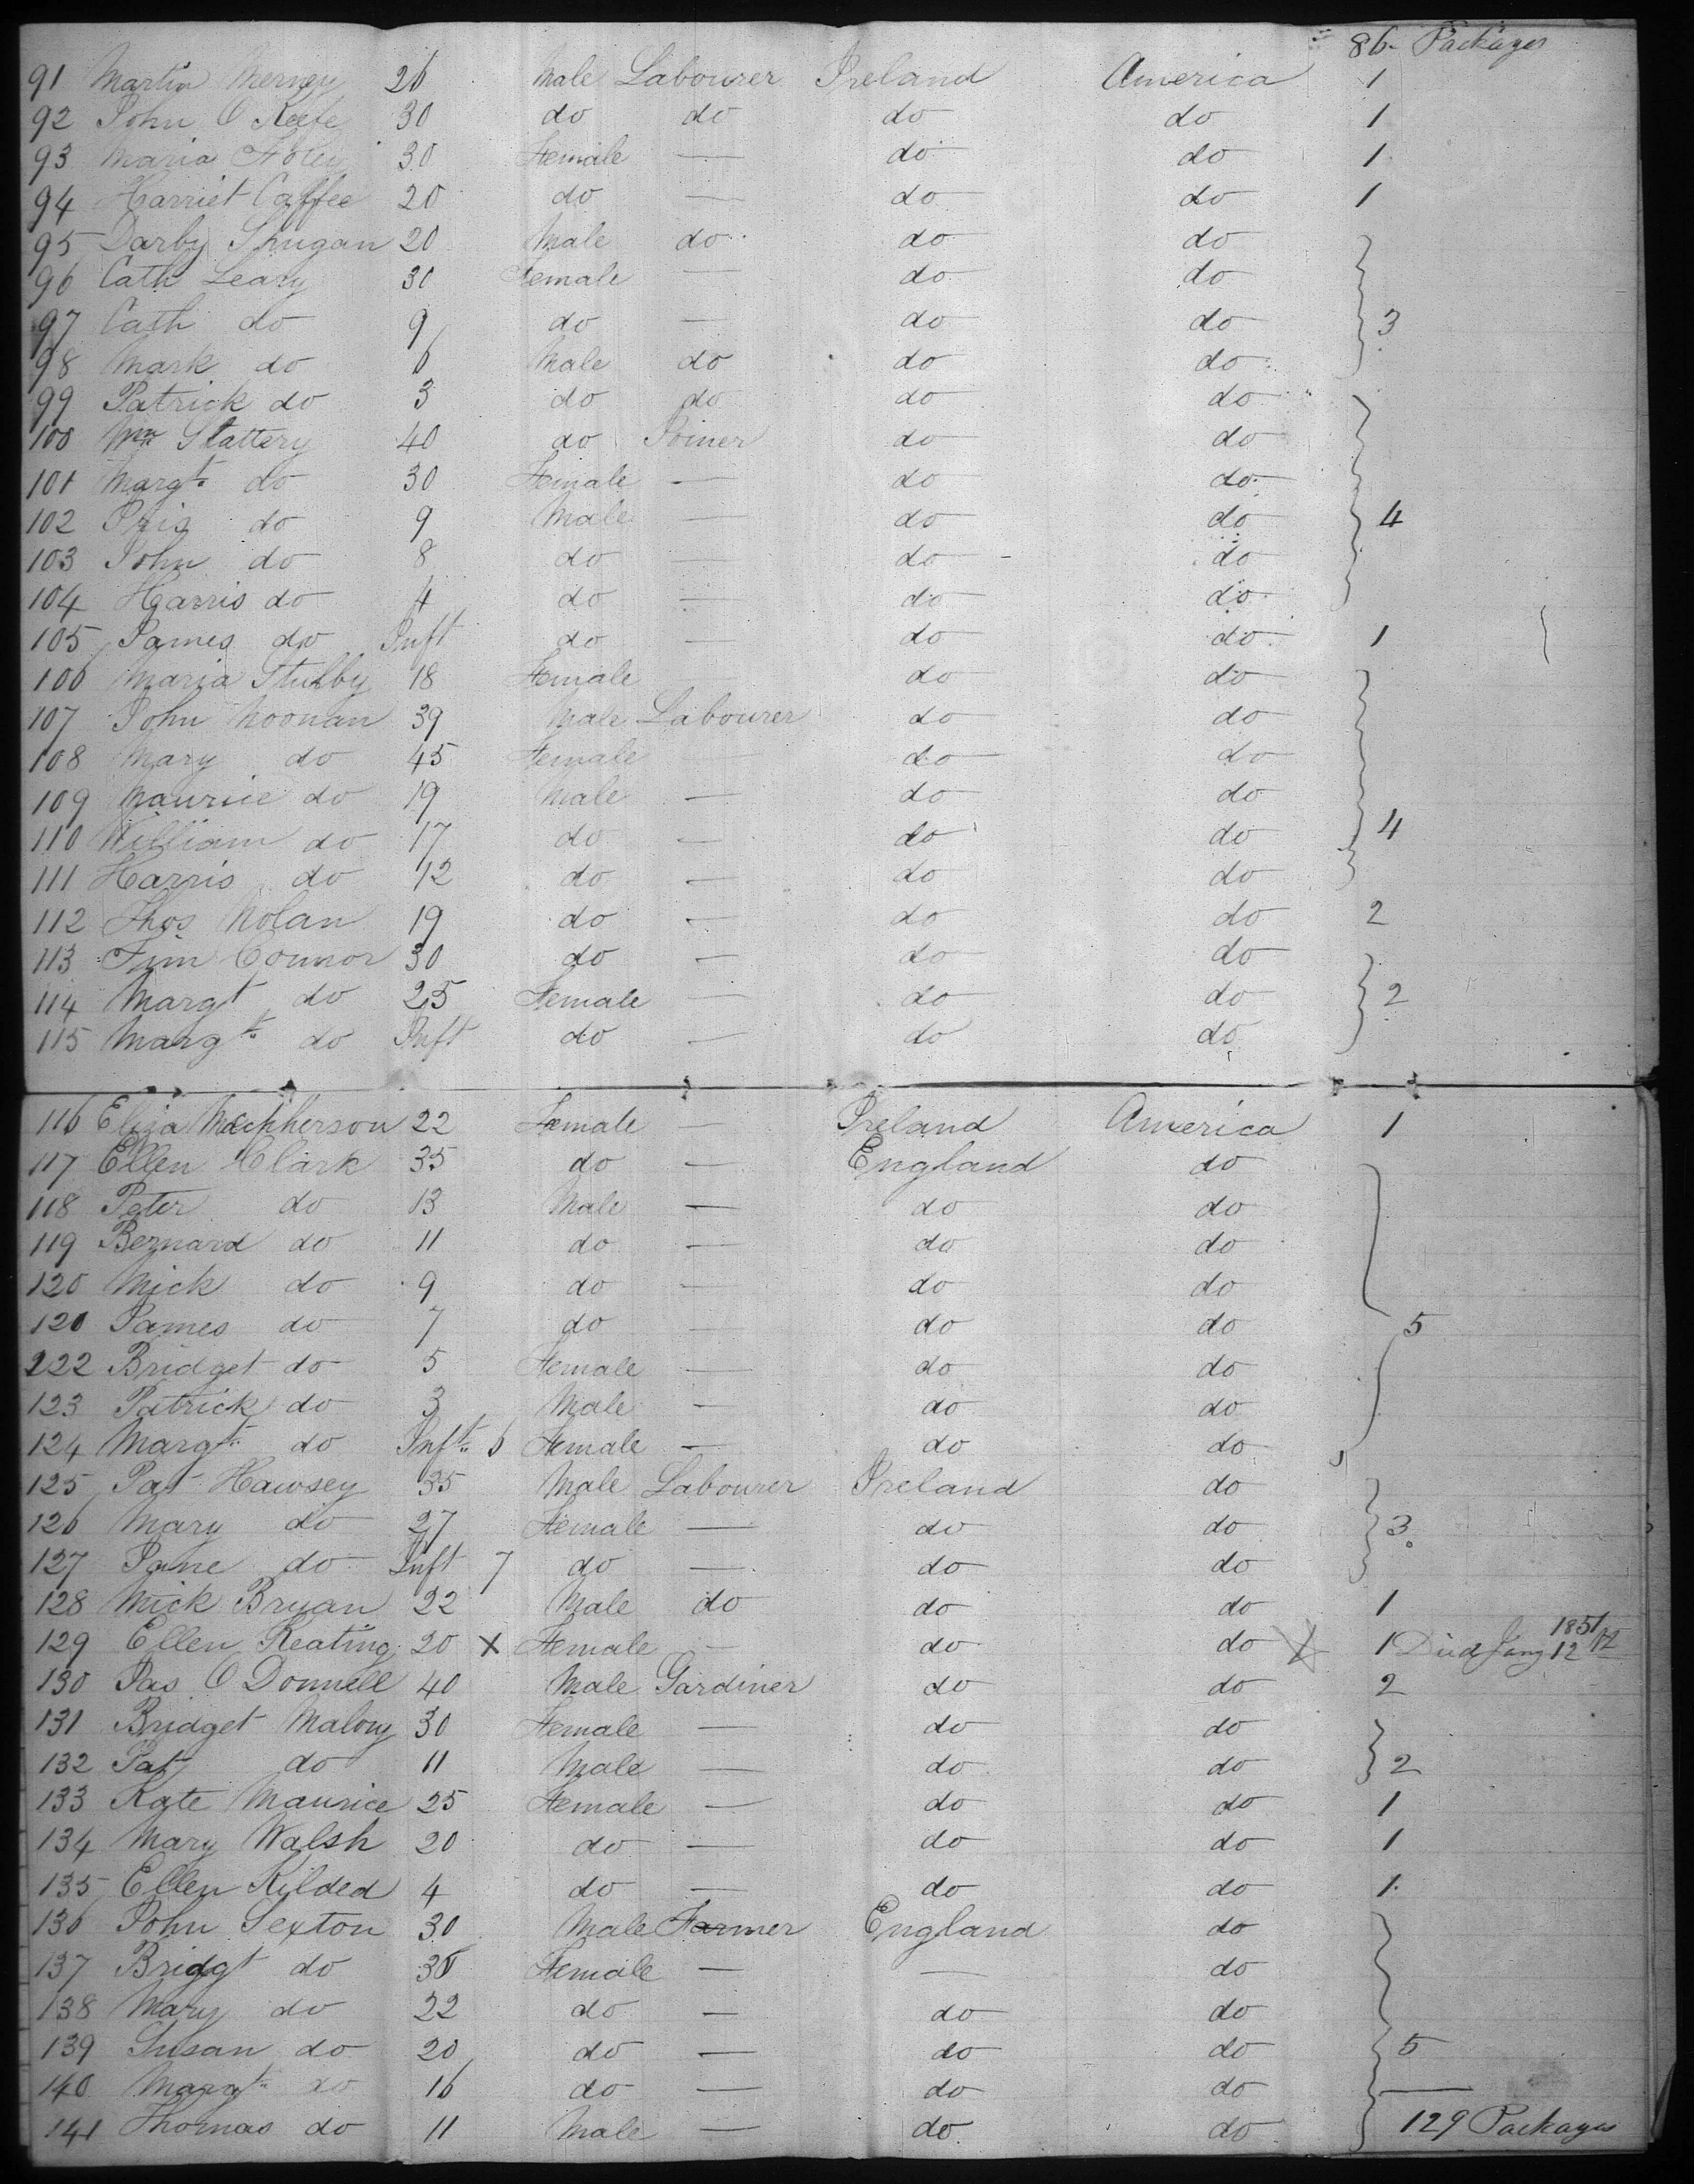 86 Packages
91 Martin Merney 26 Male Labourer Ireland America 1
92 John O Keefe 30 do do do do 1
93 Maria Foley 30 Female — do do 1
94 Harriet Caffee 20 do — do do 1
95 Darby Shugan 20 Male do do do
96 Cath Leary 30 Female — do do
97 Cath do 9 do — do do 3
98 Mark do 6 Male do do do
99 Patrick do 3 do do do do
100 Wm Slattery 40 do Joiner do do
101 Margt. do 30 Female — do do
102 do 9 Male — do do 4
103 John do 8 do — do do
104 Harris do 4 do — do do
105 James do Inft do — do do 1
106 Maria 18 Female do do
107 John Noonan 39 Male Labourer do do
108 Mary do 45 Female — do do
109 Maurice do 19 Male — do do
110 William do 17 do — do do 4
111 Harris do 12 do — do do
112 Thos Nolan 19 do — do do 2
113 Tim Connor 30 do — do do
114 Margt do 25 Female — do do 2
115 Margt. do Inft do — do do
116 Eliza Macpherson 22 Female — Ireland America 1
117 Ellen Clark 35 do — England do
118 Peter do 13 Male — do do
119 Bernard do 11 do — do do
120 Mick do 9 do — do do
120 James do 7 do — do do 5
222 Bridget do 5 Female — do do
123 Patrick do 3 Male — do do
124 Margt. do Inft. 6 Female — do do
125 Pat Hawsey 35 Male Labourer Ireland do
126 Mary do 27 Female — do do 3
127 Jane do Inft 7 do — do do
128 Mick Bryan 22 Male do do do 1
129 Ellen Keating 20 X Female — do do X 1 Died Jany 12th 1851
130 Jas O Donnell 40 Male Gardiner do do 2
131 Bridget Malony 30 Female — do do
132 Pat do 11 Male — do do 2
133 Kate Maurice 25 Female — do do 1
134 Mary Walsh 20 do — do do 1
135 Ellen Kilded 4 do — do do 1
136 John Sexton 30 Male Farmer England do
137 Bridgt do 30 Female — — do
138 Mary do 22 do — do do
139 Susan do 20 do — do do 5
140 Margt. do 16 do — do do
141 Thomas do 11 Male — do do
129 Packages